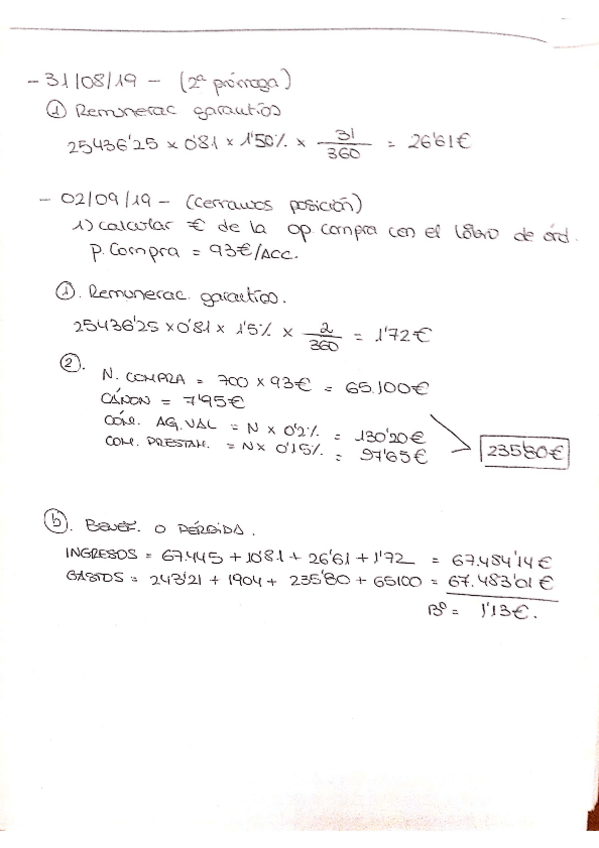 - 31/08/19 - (2ª prórroga)
① Remunerac garantías
25436'25 x 0'81 x 1'50% x 31/360 = 26'61€
- 02/09/19 - (Cerramos posición)
1) calcular € de la op. compra con el libro de órd.
P. Compra = 93€/ACC.
①. Remunerac. garantías.
25436'25 x 0'81 x 1'5% x 2/360 = 1'72€
②.
N. COMPRA = 700 x 93€ = 65.100€
CÁNON = 7'95€
COM. AG. VAL = N x 0'2% = 130'20€
COM. PRESTAM. = N x 0'15% = 97'65€
235'80€
ⓑ. BENEF. O PÉRDIDA.
INGRESOS = 67.445 + 10'81 + 26'61 + 1'72 = 67.484'14€
GASTOS = 243'21 + 1904 + 235'80 + 65100 = 67.483'01€
Bº = 1'13€.